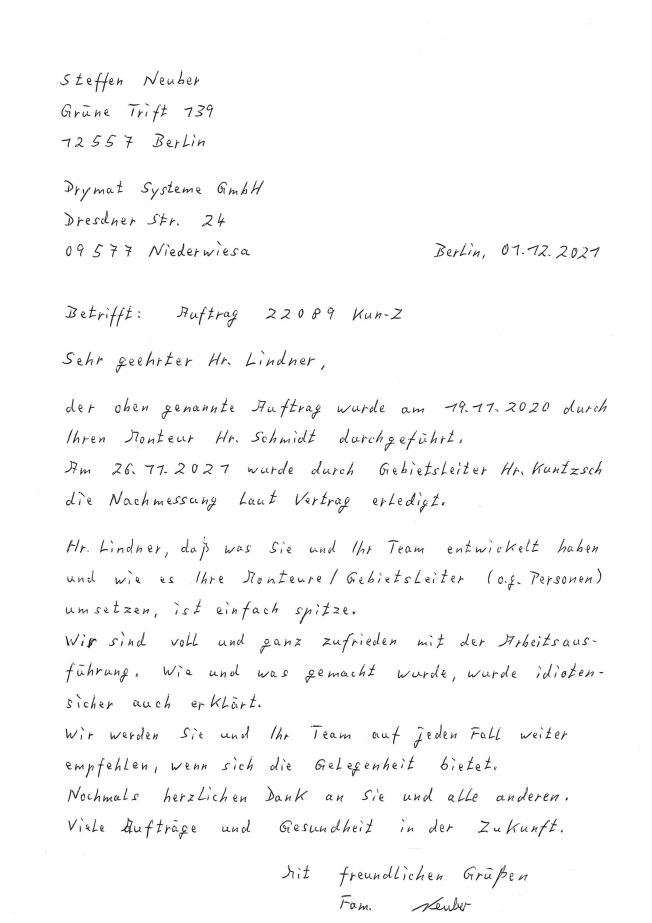 Steffen Neuber
Grüne Trift 139
12557 Berlin
Drymat Systeme GmbH
Dresdner Str. 24
09577 Niederwiesa Berlin, 01.12.2021
Betrifft: Auftrag 22089 Kun-Z
Sehr geehrter Hr. Lindner,
der oben genannte Auftrag wurde am 19.11.2020 durch
Ihren Monteur Hr. Schmidt durchgeführt.
Am 26.11.2021 wurde durch Gebietsleiter Hr. Kuntzsch
die Nachmessung laut Vertrag erledigt.
Hr. Lindner, daß was Sie und Ihr Team entwickelt haben
und wie es Ihre Monteure/Gebietsleiter (o.g. Personen)
umsetzen, ist einfach spitze.
Wir sind voll und ganz zufrieden mit der Arbeitsaus-
führung. Wie und was gemacht wurde, wurde idioten-
sicher auch erklärt.
Wir werden Sie und Ihr Team auf jeden Fall weiter
empfehlen, wenn sich die Gelegenheit bietet.
Nochmals herzlichen Dank an Sie und alle anderen.
Viele Aufträge und Gesundheit in der Zukunft.
Mit freundlichen Grüßen
Fam. Neuber